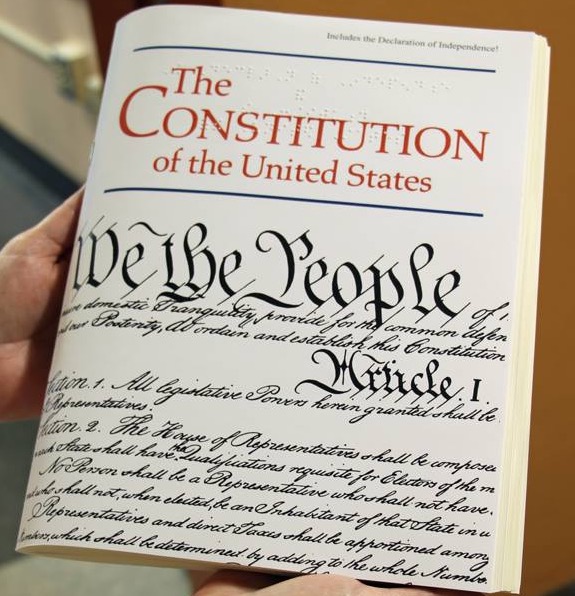 Includes the Declaration of Independence!
The
CONSTITUTION
of the United States
We the People of
domestic Tranquility, provide for the common defen
our Posterity, do ordain and establish this Constitution
Article. I.
ection. 1. All legislative Powers herein granted shall be
Representatives.
ection. 2. The House of Representatives shall be compose
each State shall have the Qualifications requisite for Electors of the m
No Person shall be a Representative who shall not have
who shall not, when elected, be an Inhabitant of that State in w
Representatives and direct Taxes shall be apportioned among
mbers, which shall be determined by adding to the whole Number